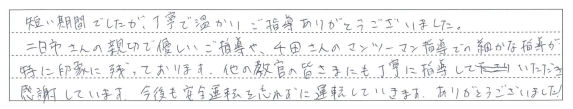 短い期間でしたが、丁寧で温かいご指導ありがとうございました。
二日市さんの親切で優しいご指導や、千田さんのマンツーマン指導での細かな指導が
特に印象に残っております。他の教官の皆さまにも丁寧に指導していただき
感謝しています。今後も安全運転を忘れずに運転していきます。ありがとうございました!